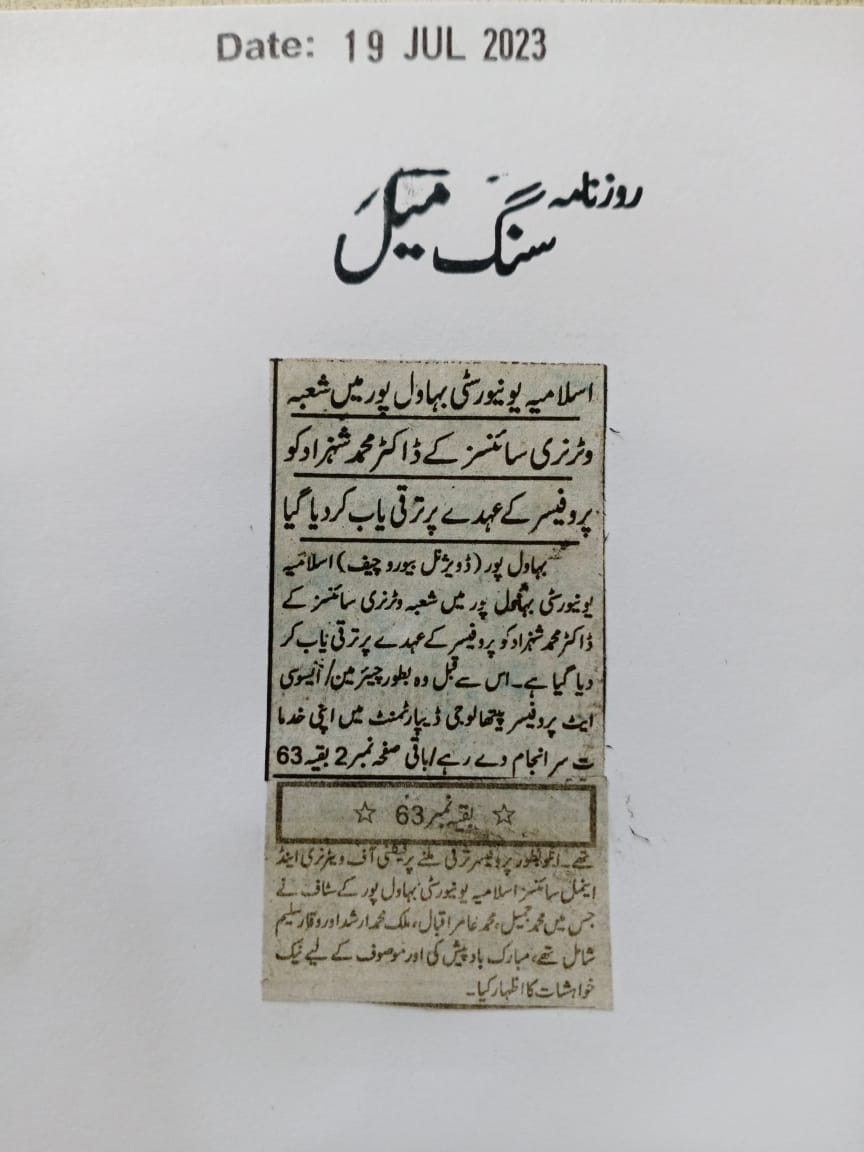 Date: 19 JUL 2023
روزنامہ
سنگ میل
اسلامیہ یونیورسٹی بہاول پور میں شعبہ
وٹرنری سائنسز کے ڈاکٹر محمد شہزاد کو
پروفیسر کے عہدے پر ترقی یاب کر دیا گیا
بہاول پور (ڈویژنل بیورو چیف) اسلامیہ
یونیورسٹی بہاول پور میں شعبہ وٹرنری سائنسز کے
ڈاکٹر محمد شہزاد کو پروفیسر کے عہدے پر ترقی یاب کر
دیا گیا ہے۔ اس سے قبل وہ بطور چیئرمین/ ایسوسی
ایٹ پروفیسر پیتھالوجی ڈیپارٹمنٹ میں اپنی خدما
ت سر انجام دے رہے/باقی صفحہ نمبر 2 بقیہ 63
☆ بقیہ نمبر 63 ☆
تھے۔ انکو بطور پروفیسر ترقی ملنے پر فیکلٹی آف ویٹرنری اینڈ
اینمل سائنسز اسلامیہ یونیورسٹی بہاول پور کے سٹاف نے
جس میں محمد جمیل، محمد عامر اقبال، ملک محمد ارشد اور وقار سلیم
شامل تھے، مبارک باد پیش کی اور موصوف کے لیے نیک
خواہشات کا اظہار کیا۔